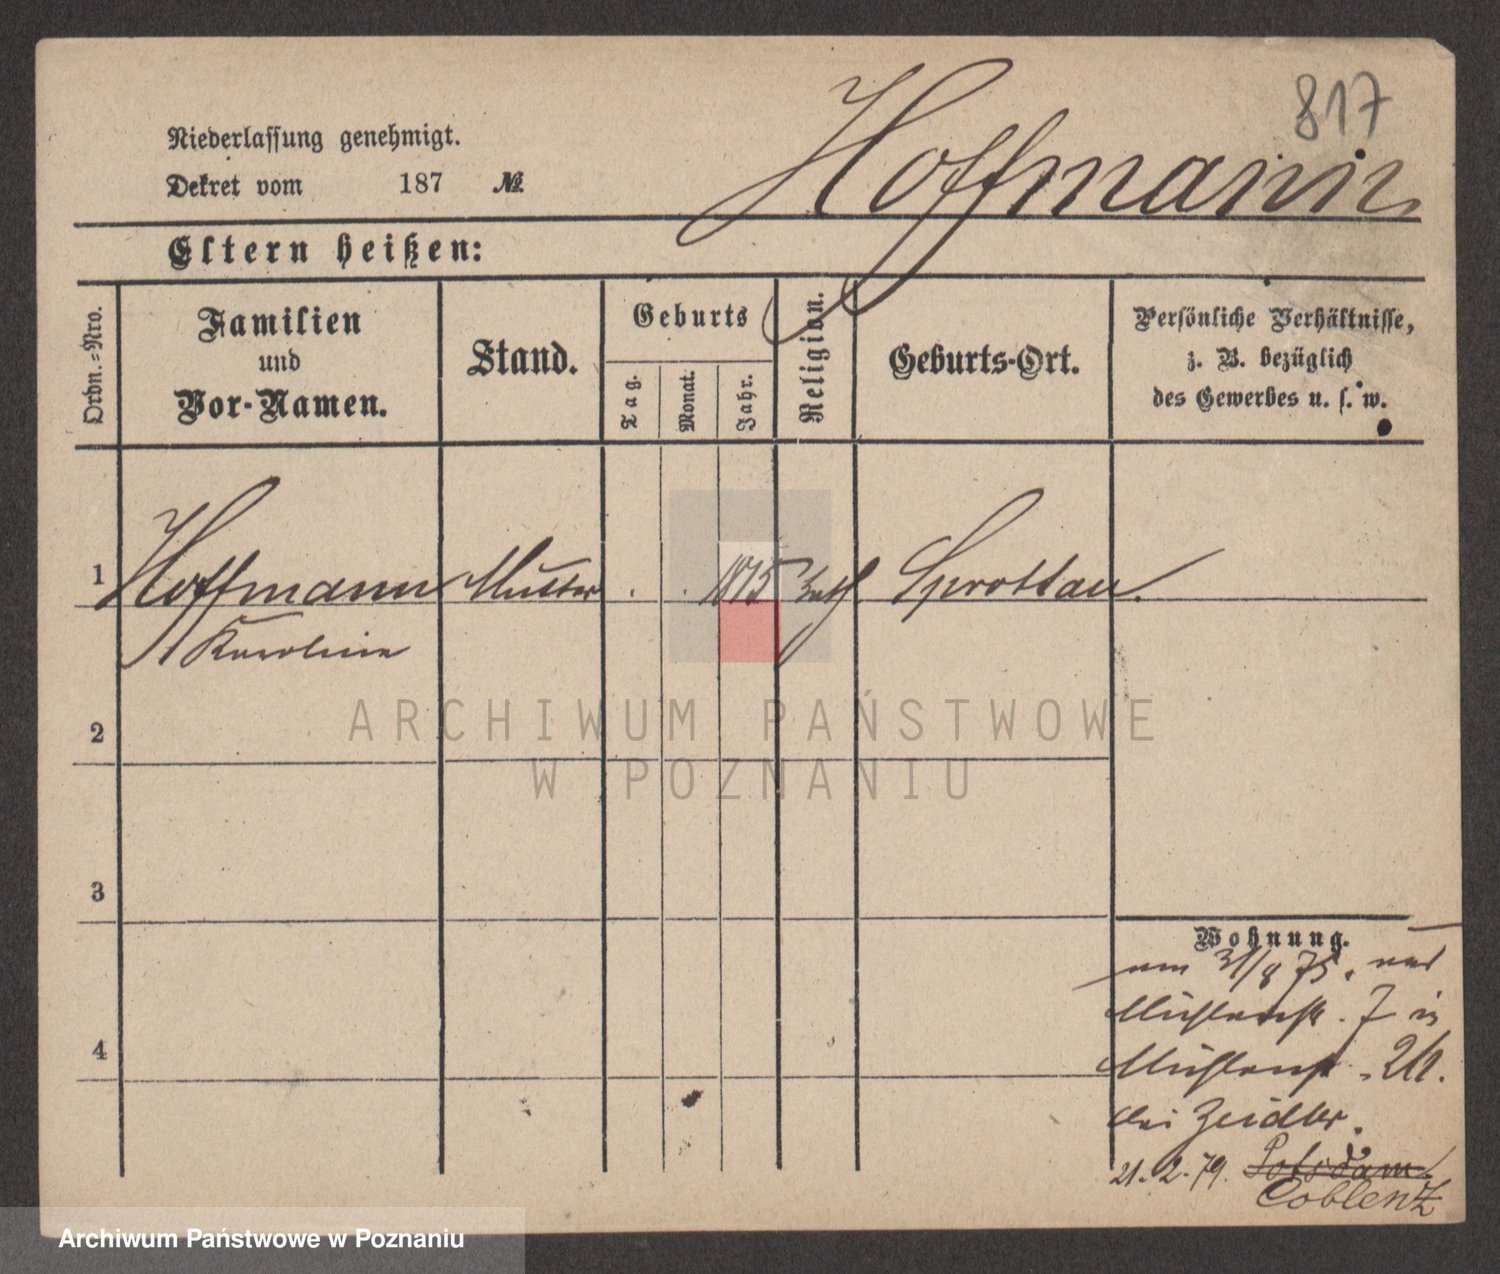 817
Hoffmann
Niederlassung genehmigt.
Dekret vom 187 №
Eltern heißen:
Ordn.-Nro.
Familien
und
Vor-Namen.
Stand.
Geburts
Tag.
Monat.
Jahr.
Religion.
Geburts-Ort.
Persönliche Verhältnisse,
z. B. bezüglich
des Gewerbes u. s. w.
1 Hoffmann Mutter 1815 kath Sprottau.
Karoline
2
3
4
Wohnung.
am 31/8 75. von
Mühlenstr. 7 in
Mühlenstr.
bei Zeidler.
21.2.79. Potsdam
Coblenz
ARCHIWUM PAŃSTWOWE
W POZNANIU
Archiwum Państwowe w Poznaniu